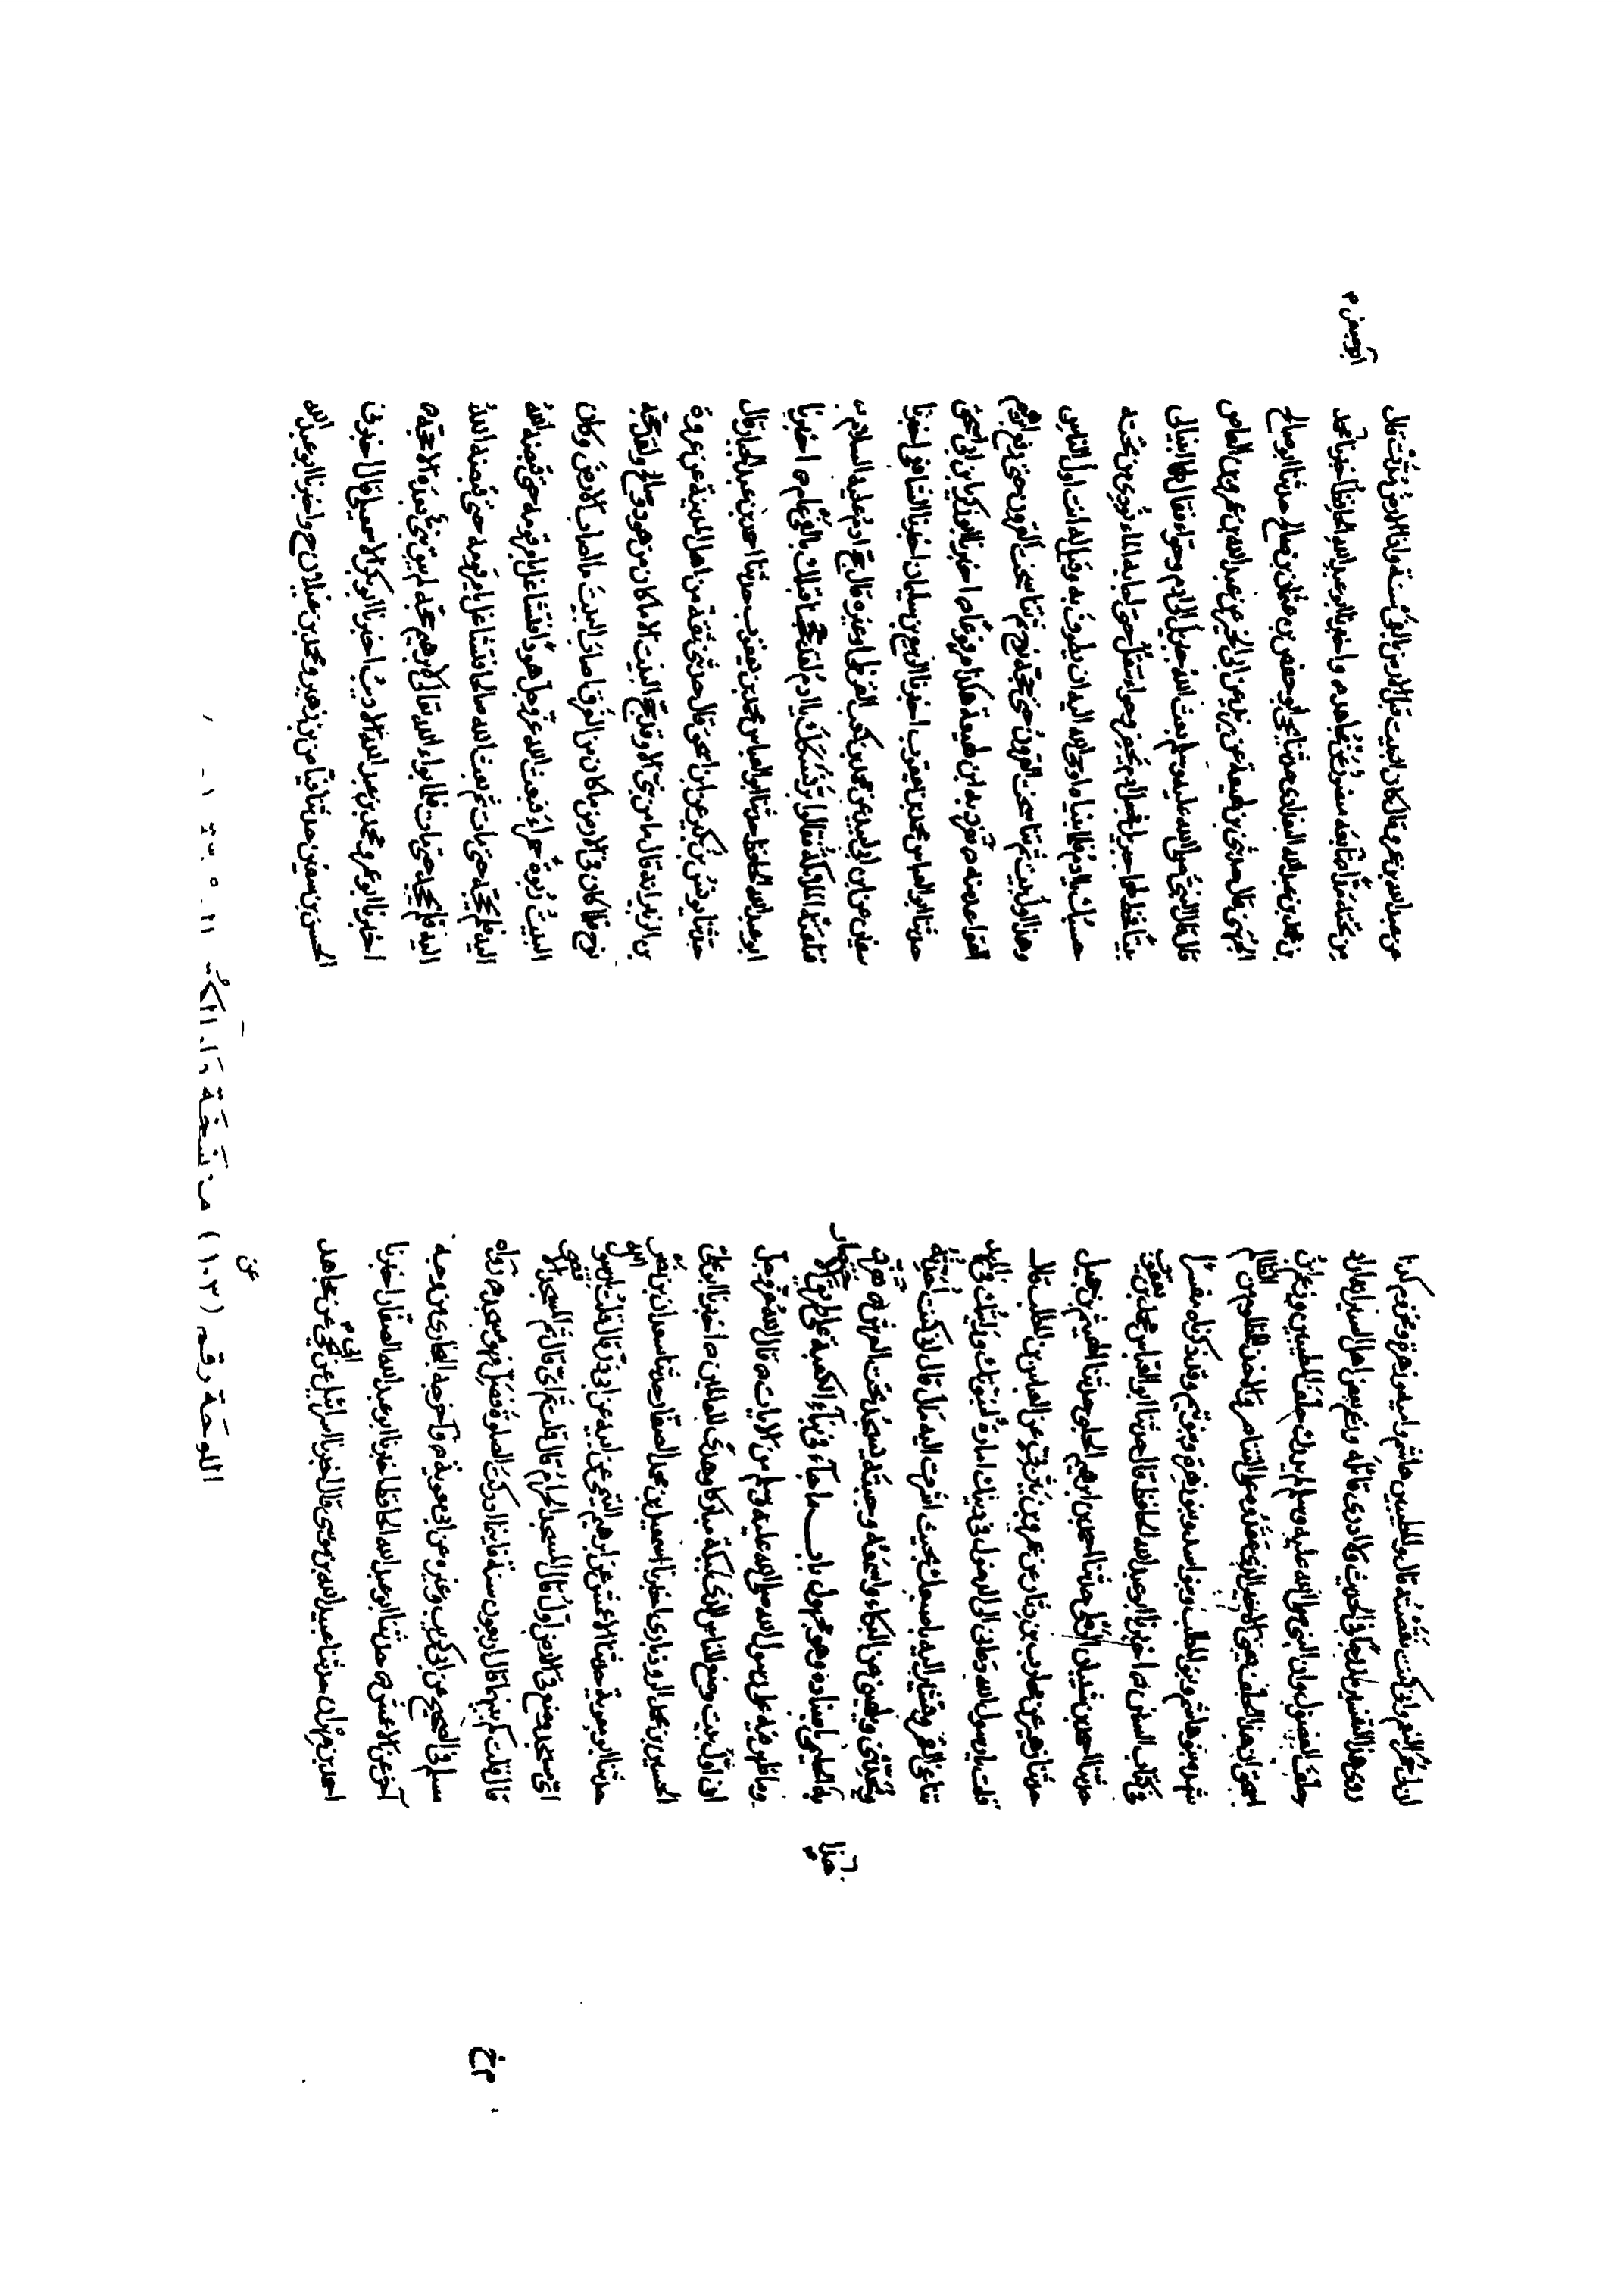 ان لي حمر النعم واني كنت نقضته قال والمطيبين هاشم واميه وزهرة ومخزوم كذا
روى هذا التفسير مدرجا في الحديث ولا ادري قائله وزعم بعض اهل السير انه اراد
حلف الفضول وان النبي صلى الله عليه وسلم لم يدرك حلف المطيبين وزعم ابن
اسحق ان هذا الحلف يعني الاخير الذي عقدوه على التناصر والاخذ للمظلوم من الظالم
شهده بنو هاشم وبنو المطلب وبنو اسد وبنو زهرة وبنو تيم وقد ذكرناه مفسرا
في كتاب السنن ه اخبرنا ابو عبد الله الحافظ قال حدثنا ابو العباس محمد بن يعقوب
حدثنا احمد بن شيبان الرملي حدثنا احمد بن ابرهيم الحبلي حدثنا الهيثم بن جميل
حدثنا زهير عن محارب بن دثار عن عمرو بن يثربي عن العباس بن عبد المطلب قال
قلت يا رسول الله دعاني الى الدخول في دينك امارة لنبوتك رايتك في المهد
تناغي القمر وتشير اليه باصبعك فحيث اشرت اليه مال قال اني كنت احدثه
ويحدثني ويلهيني عن البكاء واسمع وجبته يسجد تحت العرش ه تفرد
به الحلبي هذا باسناده وهو مجهول باب ما جاء في بناء الكعبة على طريق الاختصار
وما ظهر فيه على رسول الله صلى الله عليه وسلم من الايات ه قال الله عز وجل
ان اول بيت وضع للناس للذي ببكة مباركا وهدى للعالمين ه اخبرنا ابو علي
الحسين بن محمد الروذباري اخبرنا اسمعيل بن محمد الصفار حدثنا سعدان بن نصر
حدثنا ابو معوية حدثنا الاعمش عن ابرهيم التيمي عن ابيه عن ابي ذر قال قلت يا رسول الله
اي مسجد وضع في الارض اول قال المسجد الحرام قال قلت ثم اي قال ثم المسجد الاقصى
قال قلت كم بينهما قال اربعون سنة فاينما ادركتك الصلوة فصل فهو مسجد ه رواه
مسلم في الصحيح عن ابي كريب وغيره عن ابي معوية ه واخرجه البخاري من وجه
آخر عن الاعمش ه حدثنا ابو عبد الله الحافظ اخبرنا ابو عبد الله الصفار اخبرنا
احمد بن مهران حدثنا عبيد الله بن موسى قال اخبرنا اسرائيل عن ابي يحيى عن مجاهد
عن
عن عبد الله بن عمرو قال كان البيت قبل الارض بالفي سنة واذا الارض مدت قال
من تحته مدا تابعه منصور عن مجاهد ه واخبرنا ابو عبد الله الحافظ اخبرنا محمد
بن محمد بن عبد الله البغدادي حدثنا يحيى بن عثمان بن صالح حدثنا ابو صالح
الجهني قال حدثني ابن لهيعة عن يزيد عن ابي الخير عن عبد الله بن عمرو بن العاص
قال قال النبي صلى الله عليه وسلم بعث الله جبريل الى ادم وحواء فقال لهما ابنيا لي
بيتا فخط لهما جبريل فجعل ادم يحفر وحواء تنقل حتى اجابه الماء نودي من تحته
حسبك يا ادم فلما بنياه اوحى الله اليه ان يطوف به وقيل له انت اول الناس
وهذا اول بيت ثم تناسخت القرون حتى حجه نوح ثم تناسخت القرون حتى رفع ابرهيم
القواعد منه ه تفرد به ابن لهيعة هكذا مرفوعا ه اخبرنا ابو زكريا بن ابي اسحق
حدثنا ابو العباس محمد بن يعقوب اخبرنا الربيع بن سليمان اخبرنا الشافعي اخبرنا
سفين عن ابن ابي لبيد عن محمد بن كعب القرظي او غيره قال حج ادم عليه السلام
فلقيته الملائكة فقالوا بر نسكك يا ادم لقد حججنا قبلك بالفي عام ه اخبرنا
ابو عبد الله الحافظ حدثنا ابو العباس محمد بن يعقوب حدثنا احمد بن عبد الجبار قال
حدثنا يونس بن بكير عن ابن اسحق قال حدثني ثقة من اهل المدينة عن عروة
بن الزبير انه قال ما من نبي الا وقد حج البيت الا ما كان من هود وصالح ولقد حجه
نوح فلما كان في الارض ما كان من الغرق اصاب البيت ما اصاب الارض وكان
البيت ربوة حمراء فبعث الله عز وجل هودا فتشاغل بامر قومه حتى قبضه الله
اليه فلم يحجه حتى مات ثم بعث الله صالحا فتشاغل بامر قومه حتى قبضه الله
اليه فلم يحجه حتى مات فلما بوأه الله تعالى لابرهيم حجه لم يبق نبي بعده الا حجه ه
اخبرنا ابو عمرو محمد بن عبد الله الاديب اخبرنا ابو بكر الاسمعيلي قال اخبرني
الحسن بن سفين حدثنا فياض بن زهير ومحمود بن غيلان ح واخبرنا ابو عبد الله
اللوحة رقم (١٠٣) من نسخة